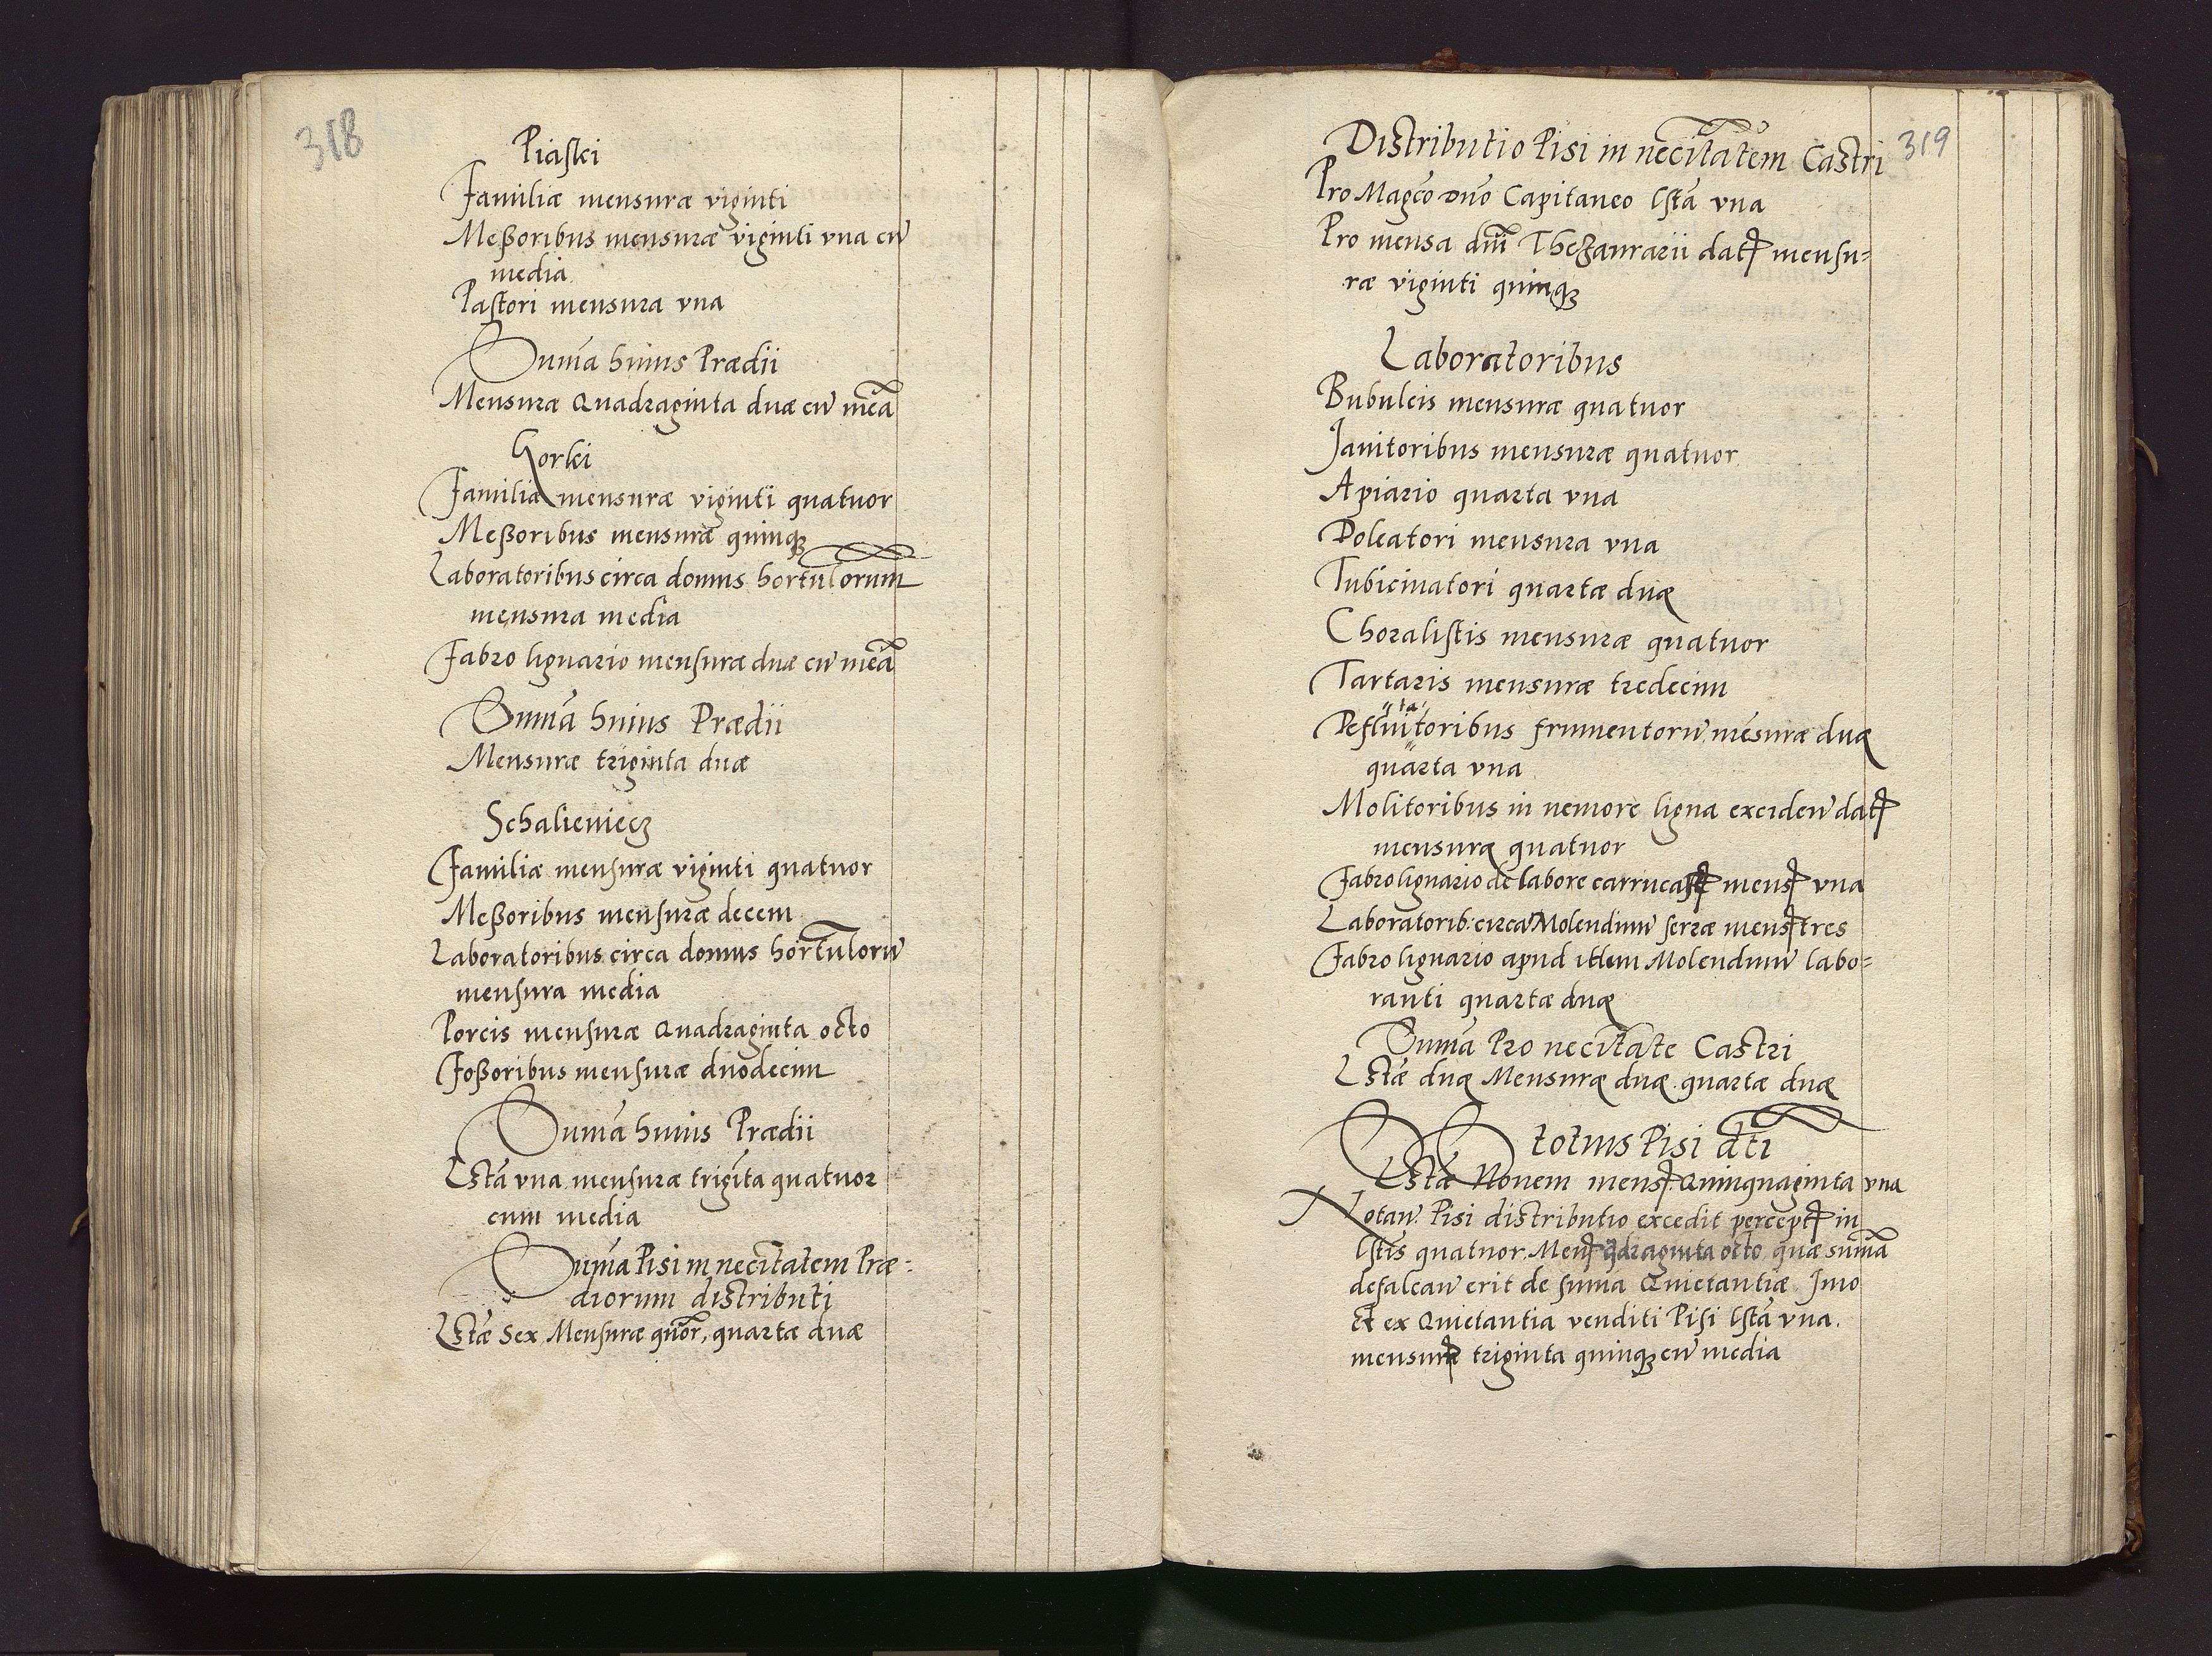 318
Piaski
Familiæ mensuræ viginti
Meßoribus mensuræ viginti vna cu̅
media
Pastori mensura vna
Suma̅ huius Prædii
Mensuræ Quadraginta duæ cu̅ me̅a
Gorki
Familiæ mensuræ viginti quatuor
Meßoribus mensuræ quinqꝫ
Laboratoribus circa domus hortulorum
mensura media
Fabro lignario mensuræ duæ cu̅ me̅a
Suma̅ huius Prædii
Mensuræ triginta duæ
Schalieniecz
Familiæ mensuræ viginti quatuor
Meßoribus mensuræ decem
Laboratoribus circa domus hortuloru̅
mensura media
Porcis mensuræ Quadraginta octo
Foßoribus mensuræ duodecim
Suma̅ huius Prædii
Lsta̅ vna mensuræ trigi̅ta quatuor
cum media
Suma̅ Pisi in neci̅tatem Præ=
diorum distributi
Lstæ̅ Sex Mensuræ quo̅r, quartæ duæ
319
Distributio Pisi in neci̅tatem Castri
Pro Magco̅ dno̅ Capitaneo lsta̅ vna
Pro mensa dni̅ Thezaurarii datꝭ mensu=
ræ viginti quinqꝫ
Laboratoribus
Bubulcis mensuræ quatuor
Janitoribus mensuræ quatuor
Apiario quarta vna
Doleatori mensura vna
Tubicinatori quartæ duę
Choralistis mensuræ quatuor
Tartaris mensuræ tredecim
ta
Defluitoribus frumentoru̅ me̅suræ duę
quarta vna
Molitoribus in nemore ligna exciden̅ datꝭ
mensurę quatuor
Fabro lignario de labore mensꝭ vna
Laboratorib: circa Molendinu̅ serræ mensꝭ tres
Fabro lignario apud Molendinu̅ labo=
ranti quartæ duę
Suma̅ Pro neci̅tate Castri
Lstæ̅ duę Mensurę duę quartæ duę
totius Pisi dti̅
Lstæ̅ Nouem mensꝭ Quinquaginta vna
Notan̅. Pisi distributio excedit perceptꝭ in
lsti̅s quatuor. Mensꝭ qdraginta octo quæ suma̅
defalcan̅ erit de suma Quietantiæ Imo
et ex Quietantia venditi Pisi lsta̅ vna.
mensuræ triginta quinqꝫ cu̅ media